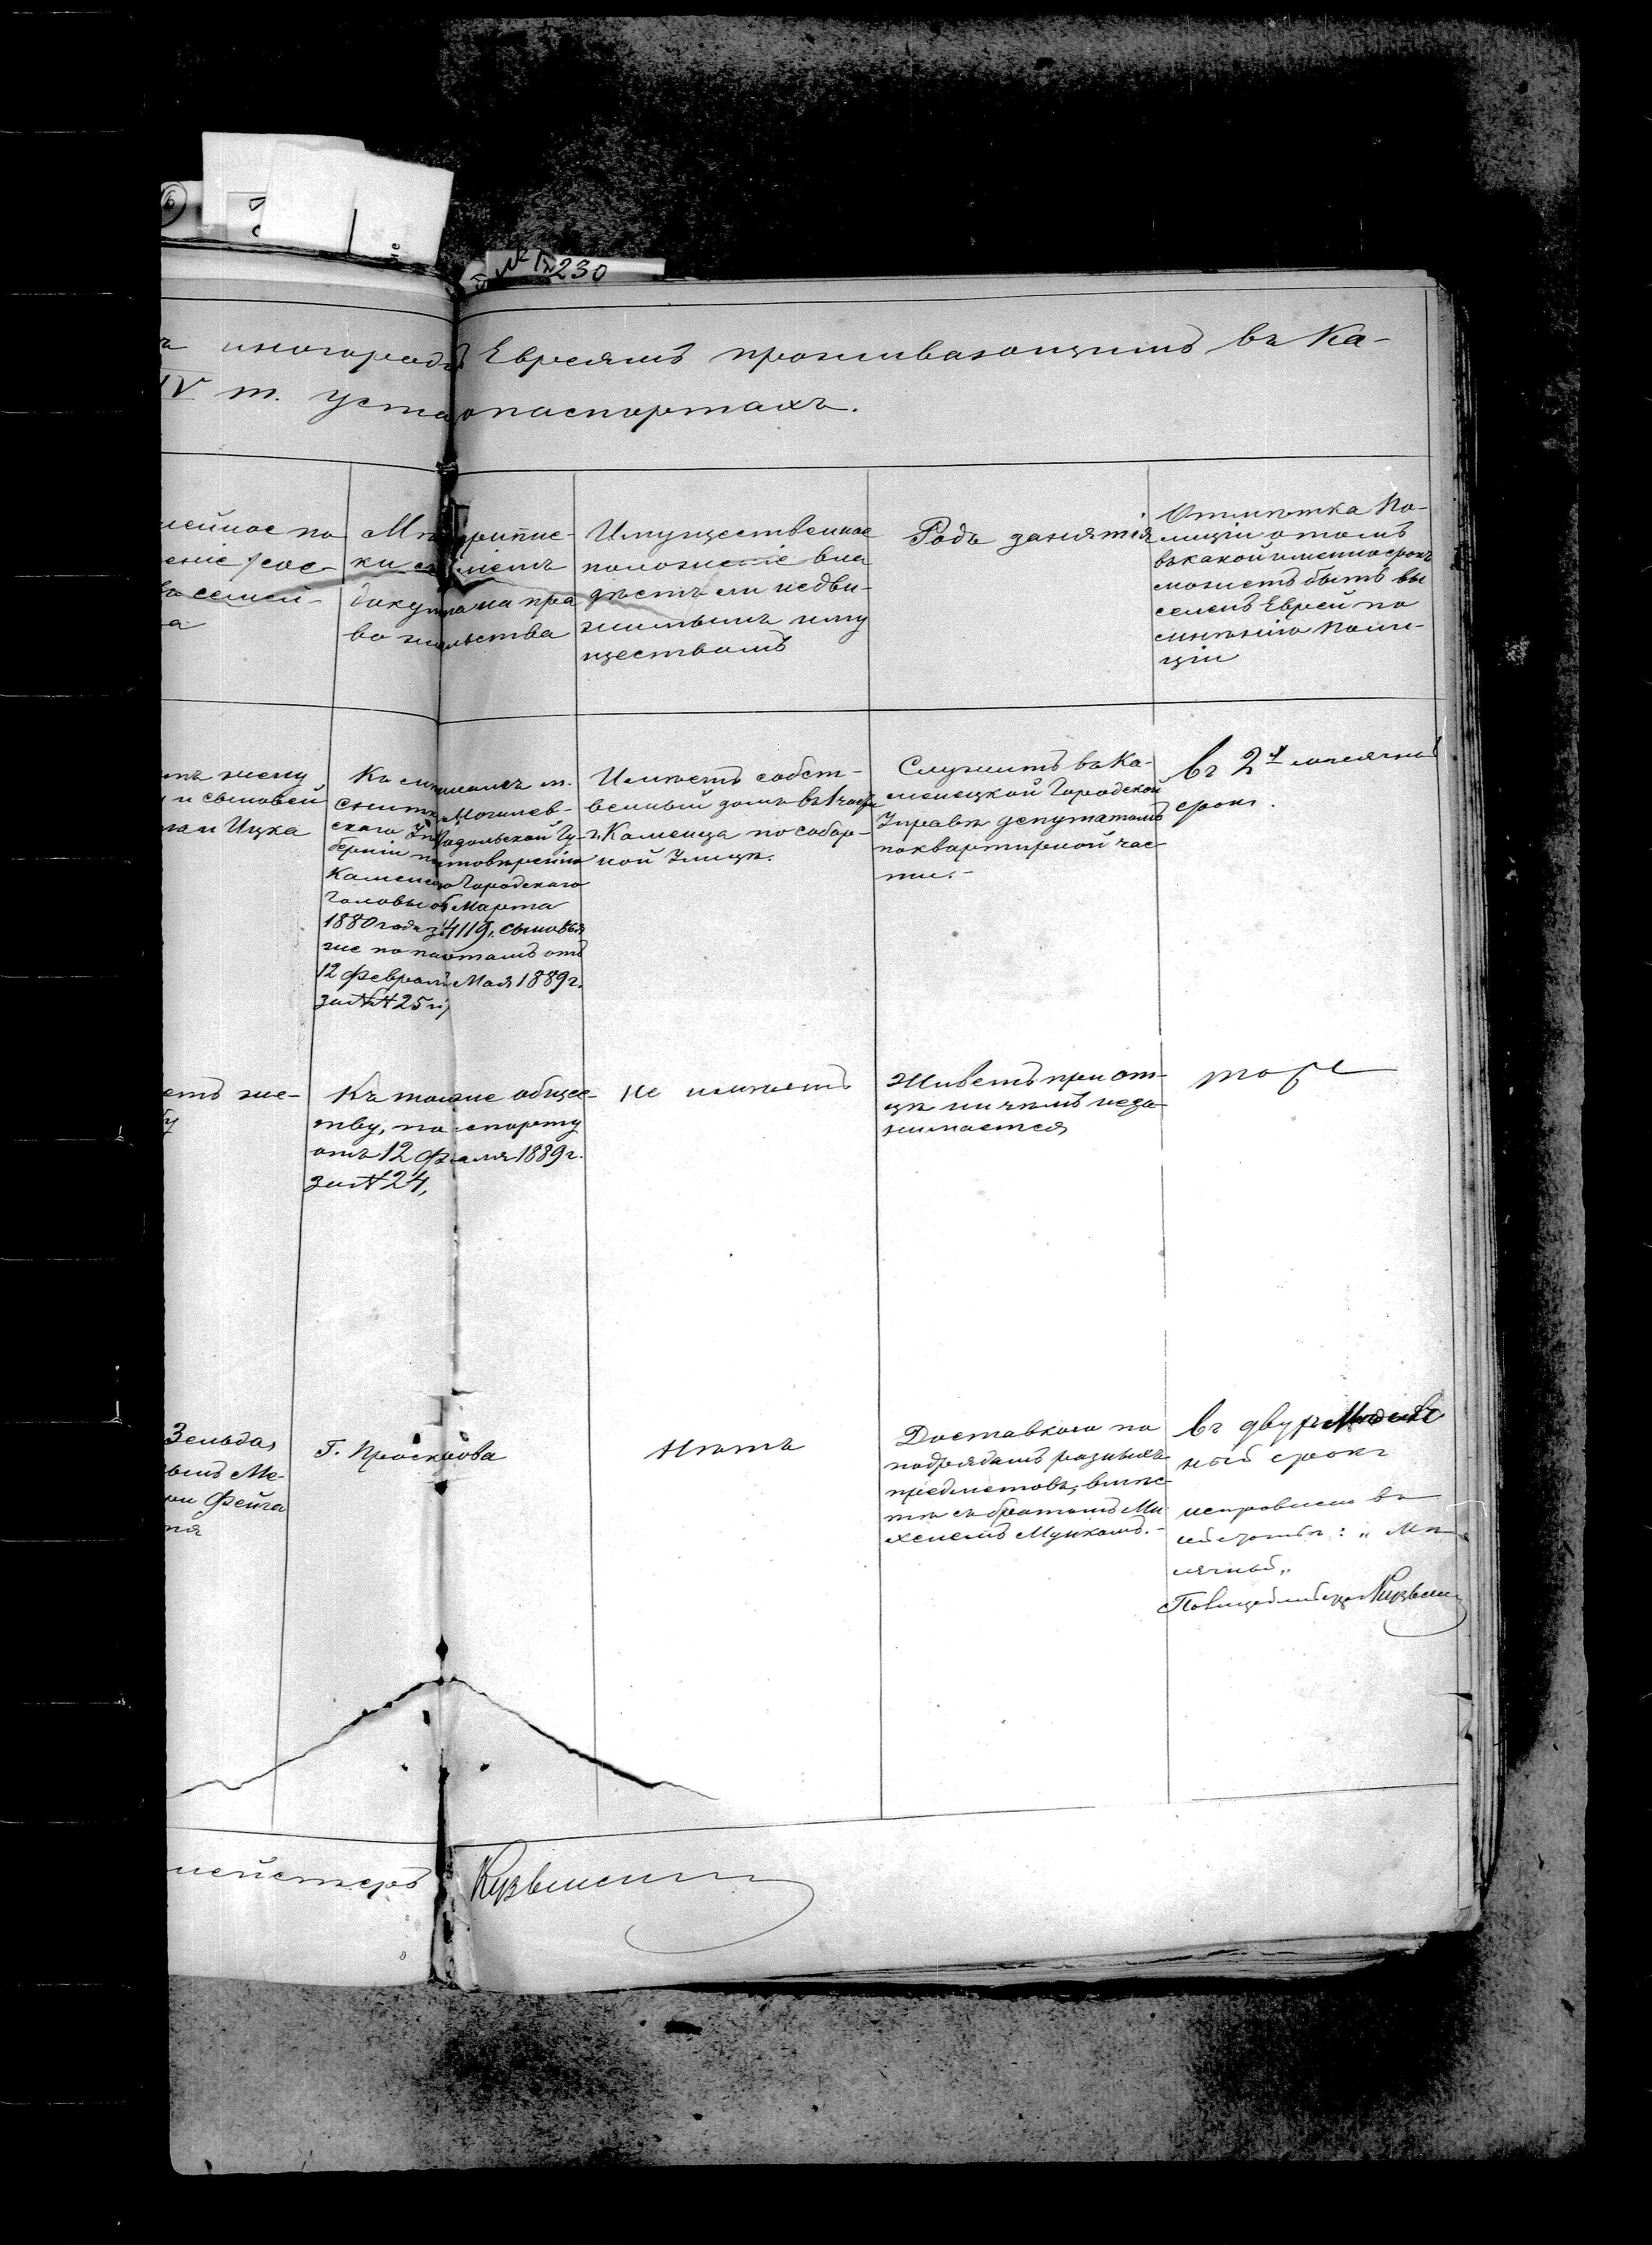 230
иногород Евреямъ проживающимъ въ Ка-
IV т. Уста опаспортахъ.
мейное по
ение /сос-
семей-
а
ки
доку на пра
во жительства
Имущественное
положеніе вла
дѣетъ ли недви-
жимымъ иму
ществомъ
Родъ занятія
Отмѣтка По-
лиціи о томъ
въ какой именно срокъ
можетъ быть вы
селенъ Еврей по
мнѣнію Поли-
ціи
жену
и сыновей
и Ицка
Къ мѣщанамъ м.
Могилев-
скаго Подольской Гу-
берніи
Городскаго
Головы Марта
1880 года 4119, сыновья
же по отъ
12 Мая 1889 г.
за №№ 25 и
Имѣетъ собст-
венный домъ въ 1 части
г. Каменца по собор-
ной Улицѣ.
Служитъ въ Ка-
менецкой Городской
Управѣ депутатомъ
по квартирной час-
ти.-
въ 2х мѣсячный
срокъ.
етъ же-
ну
Къ томуже общес-
тву, по спорту
отъ 12 1889 г.
за № 24,
Не имѣетъ
Живетъ при от-
цѣ ничѣмъ неза-
нимается
тоже
Зельда,
Ме-
Фейга
Г. Проскурова
Нѣтъ
Доставкою по
подрядамъ разныхъ
предметовъ, вмѣс-
тѣ съ братомъ Ми-
хелемъ
въ двухъ
ный срокъ
исправлено въ
сячный"
Полицеймейстеръ Кузьмин
мейстеръ Кузьмин